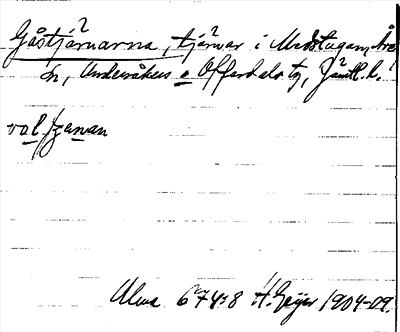 Gåstjärnarna, tjärnar i Medstugan, Åre
sn, Undersåkers o Offerdals tg, Jämtl. l.
Ulma 674:8 H. Geijer 1904-09.